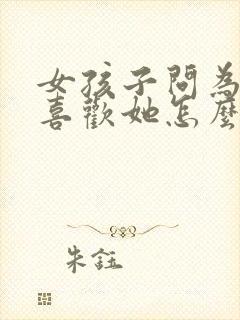 女孩子問為
喜歡她怎麼
朱鈺